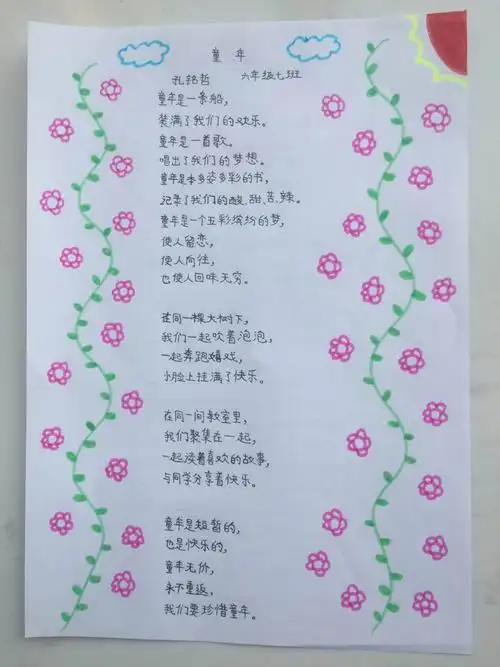 童年
孔铭哲 六年级七班
童年是一条船，
装满了我们的欢乐。
童年是一首歌。
唱出了我们的梦想。
童年是本多姿多彩的书，
记录了我们的酸、甜、苦、辣。
童年是一个五彩缤纷的梦，
使人留恋，
使人向往，
也使人回味无穷。
在同一棵大树下，
我们一起吹着泡泡，
一起奔跑嬉戏，
小脸上挂满了快乐。
在同一间教室里，
我们聚集在一起，
一起读着喜欢的故事，
与同学分享着快乐。
童年是短暂的，
也是快乐的，
童年无价，
永不重返，
我们要珍惜童年。